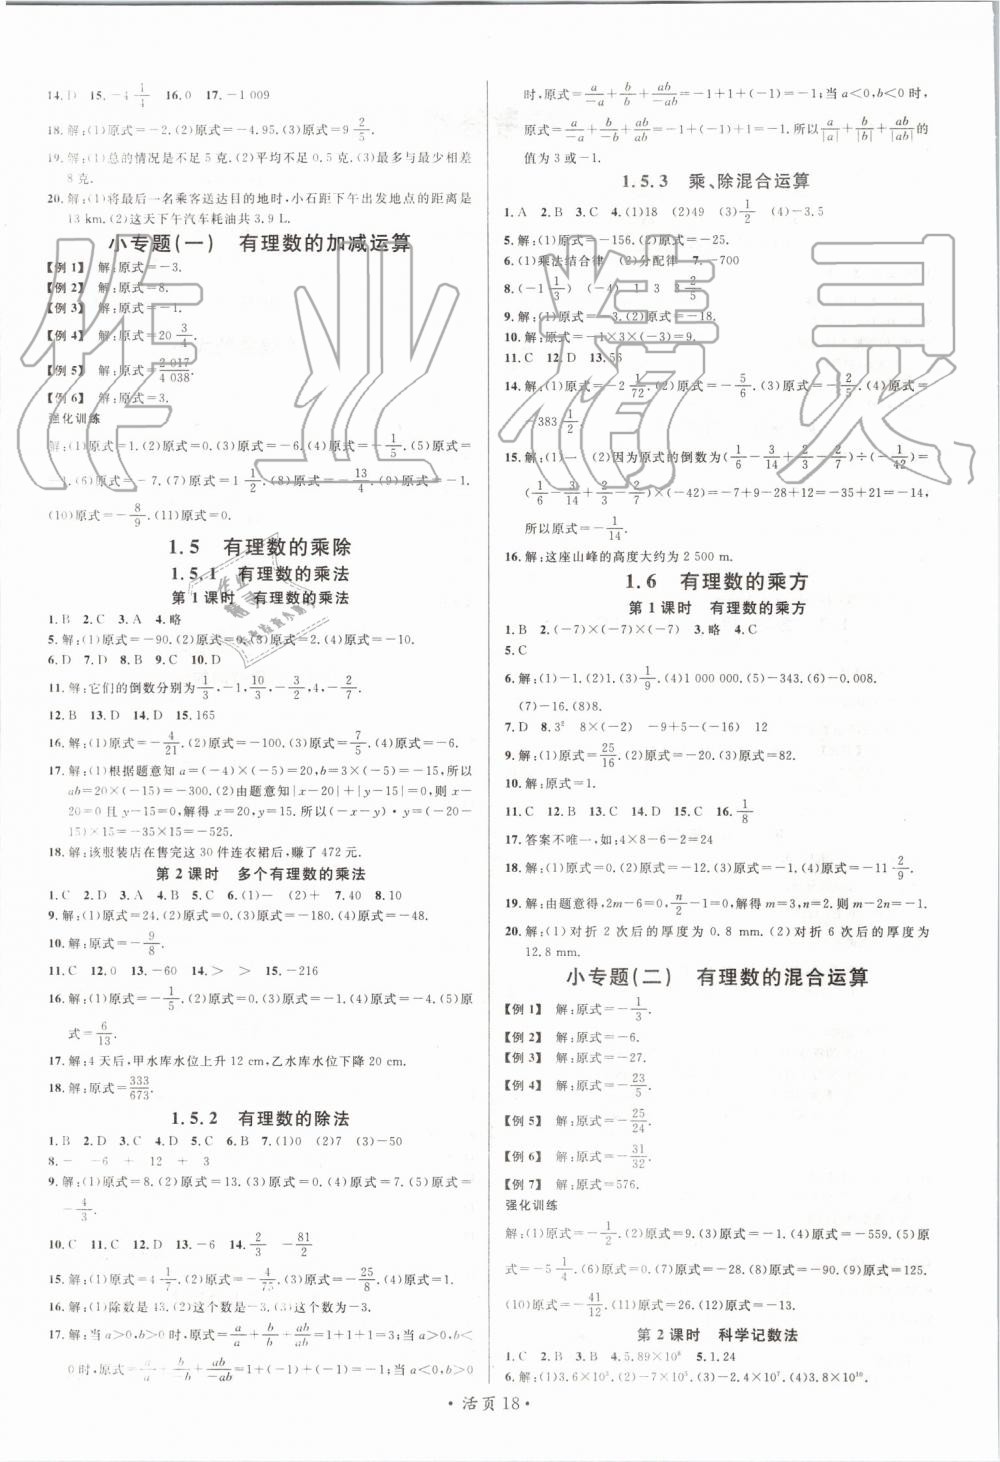 14.D　15.-4 1/4　16.0　17.-1 009
18.解:(1)原式=-2.(2)原式=-4.95.(3)原式=9 2/5.
19.解:(1)总的情况是不足 5 克.(2)平均不足 0.5 克.(3)最多与最少相差
8 克.
20.解:(1)将最后一名乘客送达目的地时,小石距下午出发点的距离是
13 km.(2)这天下午汽车耗油共 3.9 L.
小专题(一)　有理数的加减运算
【例 1】　解:原式=-3.
【例 2】　解:原式=8.
【例 3】　解:原式=-1.
【例 4】　解:原式=20 3/4.
【例 5】　解:原式=2 017/4 038.
【例 6】　解:原式=3.
强化训练
解:(1)原式=1.(2)原式=0.(3)原式=-6.(4)原式=-1/5.(5)原式=
-1.(6)原式=-7.(7)原式=1 1/2.(8)原式=-13/4.(9)原式=-1.
(10)原式=-8/9.(11)原式=0.
1.5　有理数的乘除
1.5.1　有理数的乘法
第 1 课时　有理数的乘法
1.B　2.C　3.A　4.略
5.解:(1)原式=-90.(2)原式=9.(3)原式=2.(4)原式=-10.
6.D　7.D　8.B　9.C　10.D
11.解:它们的倒数分别为1/3,-1,10/3,-3/2,4,-2/7.
12.B　13.D　14.D　15.165
16.解:(1)原式=-4/21.(2)原式=-100.(3)原式=7/5.(4)原式=-6.
17.解:(1)根据题意知 a=(-4)×(-5)=20,b=3×(-5)=-15,所以
ab=20×(-15)=-300.(2)由题意知|x-20|+|y-15|=0,则 x-
20=0 且 y-15=0,解得 x=20,y=15.所以(-x-y)·y=(-20-
15)×15=-35×15=-525.
18.解:该服装店在售完这 30 件连衣裙后,赚了 472 元.
第 2 课时　多个有理数的乘法
1.C　2.D　3.A　4.B　5.C　6.(1)-　(2)+　7.40　8.10
9.解:(1)原式=24.(2)原式=0.(3)原式=-180.(4)原式=-48.
10.解:原式=-9/8.
11.C　12.0　13.0　14.>　>　15.-216
16.解:(1)原式=-1/5.(2)原式=4.(3)原式=-6.(4)原式=8.(5)原
式=6/13.
17.解:4 天后,甲水库水位上升 12 cm,乙水库水位下降 20 cm.
18.解:原式=333/673.
1.5.2　有理数的除法
1.B　2.D　3.C　4.D　5.C　6.B　7.(1)0　(2)7　(3)-50
8.-　-6　+　12　+　3
9.解:(1)原式=8.(2)原式=13.(3)原式=0.(4)原式=7.(5)原式=
-4/3.
10.C　11.C　12.D　13.-6　14.2/3　-81/2
15.解:(1)原式=4 1/7.(2)原式=-4/75.(3)原式=-25/8.(4)原式=1.
16.解:(1)除数是 43.(2)这个数是-3.(3)这个数为-3.
17.解:当 a>0,b>0 时,原式=a/a+b/b+ab/ab=1+1+1=3;当 a>0,b<
0 时,原式=a/a+b/-b+ab/-ab=1+(-1)+(-1)=-1;当 a<0,b>0
时,原式=a/-a+b/b+ab/-ab=-1+1+(-1)=-1;当 a<0,b<0 时,
原式=a/-a+b/-b+ab/ab=-1+(-1)+1=-1.所以a/|a|+b/|b|+ab/|ab|的
值为 3 或-1.
1.5.3　乘、除混合运算
1.A　2.B　3.C　4.(1)18　(2)49　(3)1/2　(4)-3.5
5.解:(1)原式=-156.(2)原式=-25.
6.(1)乘法结合律　(2)分配律　7.-700
8.(-1 1/3)　(-4)　1　3　3 2/5
9.解:(1)原式=-3.(2)原式=-18.
10.解:原式=-1×3×(-3)=9.
11.C　12.D　13.56
14.解:(1)原式=-2 1/72.(2)原式=-5/6.(3)原式=-2/5.(4)原式=
-383 1/2.
15.解:(1)一　(2)因为原式的倒数为(1/6-3/14+2/3-2/7)÷(-1/42)=
(1/6-3/14+2/3-2/7)×(-42)=-7+9-28+12=-35+21=-14,
所以原式=-1/14.
16.解:这座山峰的高度大约为 2 500 m.
1.6　有理数的乘方
第 1 课时　有理数的乘方
1.B　2.(-7)×(-7)×(-7)　3.略　4.C
5.C
6.解:(1)-1.(2)1.(3)-1/9.(4)1 000 000.(5)-343.(6)-0.008.
(7)-16.(8)8.
7.D　8.3²　8×(-2)　-9+5-(-16)　12
9.解:(1)原式=25/16.(2)原式=-20.(3)原式=82.
10.解:原式=1.
11.C　12.B　13.C　14.D　15.C　16.1/8
17.答案不唯一,如:4×8-6-2=24
18.解:(1)原式=0.(2)原式=2.(3)原式=-4.(4)原式=-11 2/9.
19.解:由题意得,2m-6=0,n/2-1=0,解得 m=3,n=2.则 m-2n=-1.
20.解:(1)对折 2 次后的厚度为 0.8 mm.(2)对折 6 次后的厚度为
12.8 mm.
小专题(二)　有理数的混合运算
【例 1】　解:原式=-1/3.
【例 2】　解:原式=-6.
【例 3】　解:原式=-27.
【例 4】　解:原式=-23/5.
【例 5】　解:原式=-25/24.
【例 6】　解:原式=-31/32.
【例 7】　解:原式=576.
强化训练
解:(1)原式=-1/2.(2)原式=9.(3)原式=-1.(4)原式=-559.(5)原
式=-5 1/4.(6)原式=0.(7)原式=-28.(8)原式=-90.(9)原式=125.
(10)原式=-41/12.(11)原式=26.(12)原式=-13.
第 2 课时　科学记数法
1.C　2.B　3.B　4.5.89×10⁸　5.1.24
6.解:(1)3.6×10³.(2)-2.4×10⁷.(4)3.8×10¹⁰.
·活页 18·
作业精灵